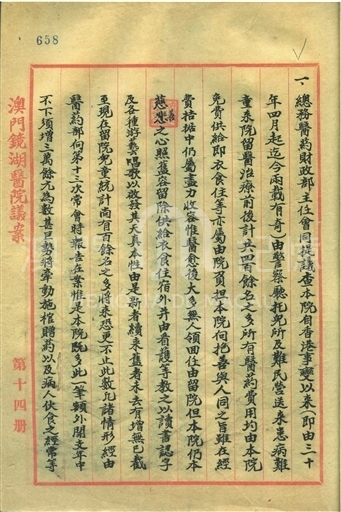 658
一 總務醫药財政部主任會同提議查本院自香港事變以來(即由三十
年四月起迄今兩載有奇)由警察廳托兒所及難民營送來患病難
童來院留醫治療前後計共四百餘名之多所有醫药費用均由本院
免費供給即衣食住等亦屬由院負担本院向抱善與人同之旨雖在經
費桔据中仍屬盡力收容惟醫愈後大多無人領回任由留院但本院仍本
慈悲之心照舊容留除供給衣食住宿外并由看護等教之以讀書認字
及各種游藝唱歌以啟發其天真本性由是新者續來舊者未去有增無已截
至現在留院兒童統計尚有百餘名之多將來恐更不止此數凡諸情形經由
醫药部向第十三次常會時報告在案惟是本院既多此一筆額外開支年中
不下須增三萬餘元為數甚巨勢將牽動施棺贈药以及病人伙食之經常等
澳門鏡湖醫院議案
第十四册